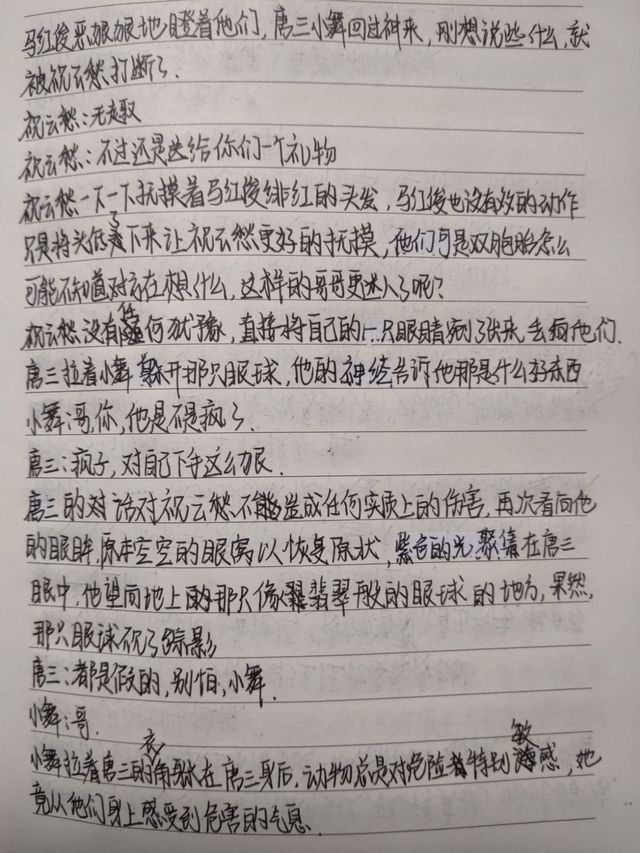 马红俊恶狠狠地瞪着他们，唐三小舞回过神来，刚想说些什么，就
被祝云愁打断了.
祝云愁：无趣
祝云愁：不过还是送给你们一个礼物
祝云愁一下一下抚摸着马红俊绯红的头发，马红俊也没有多的动作
只是将头低了下来让祝云愁更好的抚摸，他们可是双胞胎怎么
可能不知道对方在想什么，这样的哥哥更迷人了呢？
祝云愁没有任何犹豫，直接将自己的一只眼睛剜了出来，丢向他们.
唐三拉着小舞躲开那只眼球，他的神经告诉他那是什么好东西
小舞：哥，你，他是不是疯了.
唐三：疯子，对自己下手这么狠.
唐三的对话对祝云愁不能造成任何实质上的伤害，再次看向他
的眼眸，原本空空的眼窝以恢复原状，紫色的光聚集在唐三
眼中，他望向地上的那只像翡翠般的眼球的地方，果然，
那只眼球不见了踪影
唐三：都是假的，别怕，小舞.
小舞：哥.
小舞拉着唐三的衣角躲在唐三身后，动物总是对危险特别敏感，她
竟从他们身上感受到危害的气息.